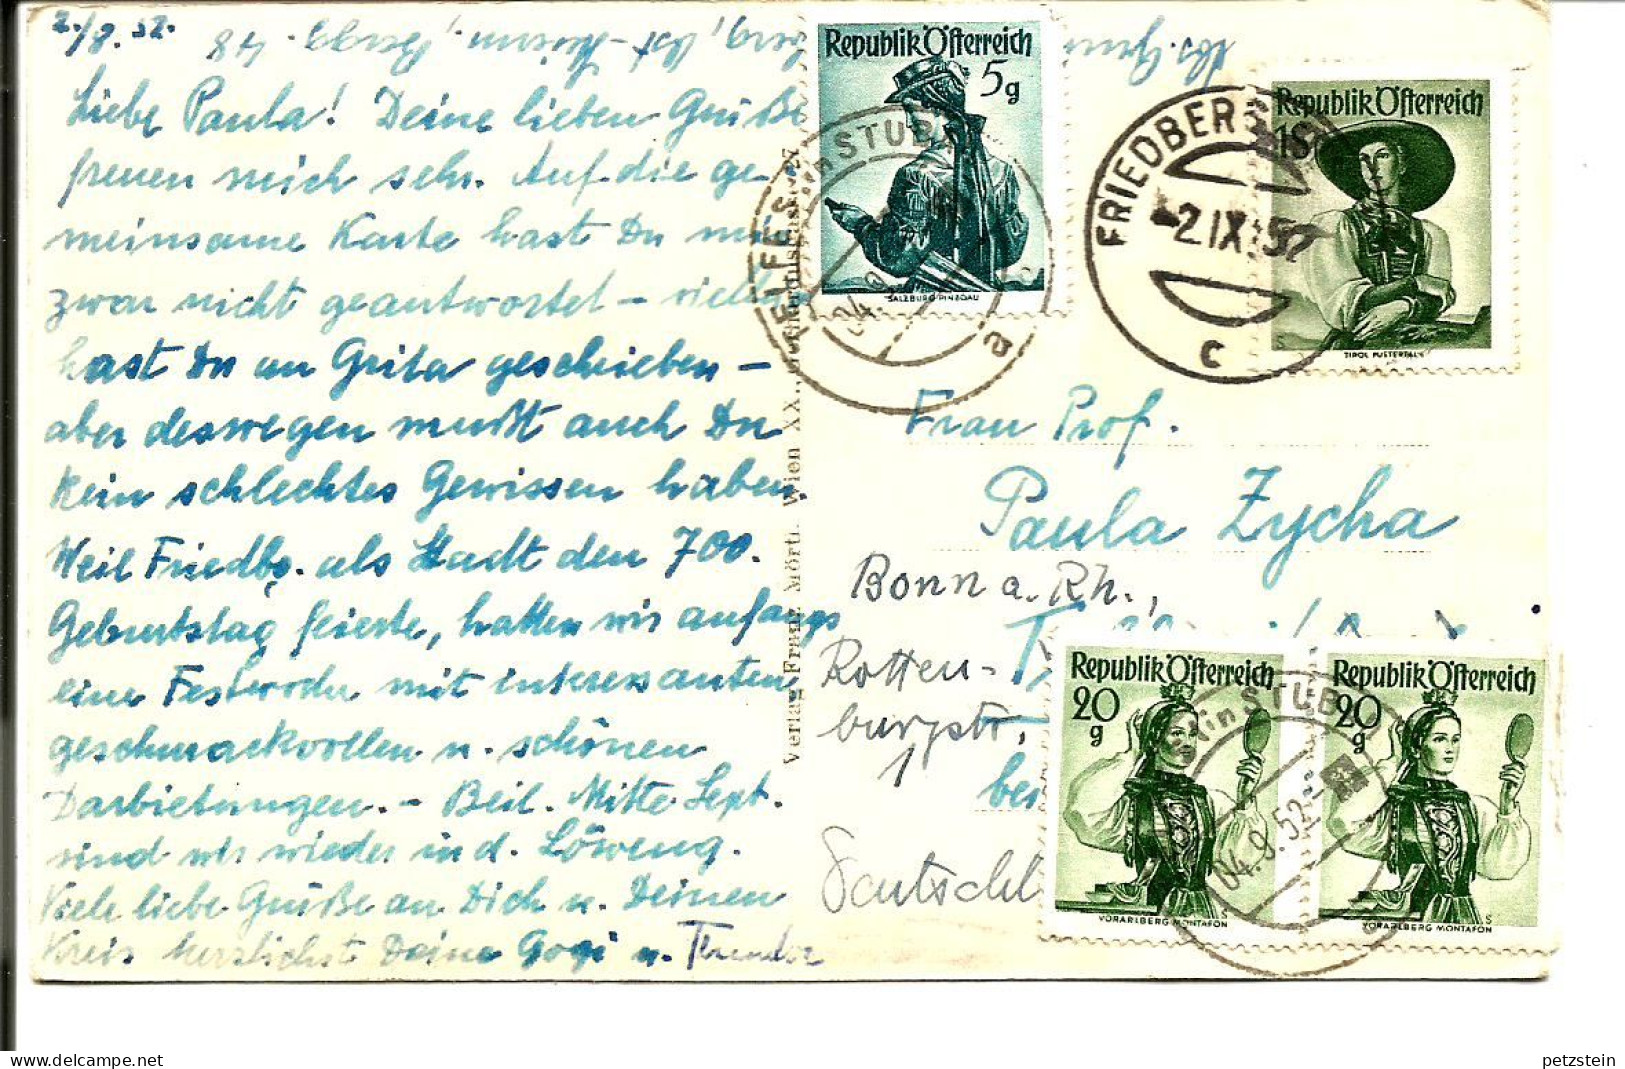 2./8. 52.
Liebe Paula! Deine lieben Grüße
freuen mich sehr. Auf die ge-
meinsame Karte hast Du mir
zwar nicht geantwortet – vielleicht
hast Du an Grita geschrieben –
aber deswegen mußt auch Du
kein schlechtes Gewissen haben.
Weil Friedbg. als Stadt den 700.
Geburtstag feierte, hatten wir anfangs
eine Festwoche mit interessanten
geschmackvollen u. schönen
Darbietungen. – Beil. Mitte Sept.
sind wir wieder in d. Löweng.
Viele liebe Grüße an Dich u. Deinen
Kreis herzlichst Deine Gogi u.
Verlag Franz Mört. Wien XX.,
Republik Österreich
5g
SALZBURG PINZGAU
TELFES in STUBAI
04.9
a
FRIEDBERG
-2.IX.52
c
Republik Österreich
1S
TIROL PUSTERTAL
Frau Prof.
Paula Zycha
Bonn a. Rh.,
Rotten-
burgstr.
1
bei
Deutschl
Republik Österreich
20 g
VORARLBERG MONTAFON
Republik Österreich
20 g
VORARLBERG MONTAFON
in STUB
04.9.52
petzstein